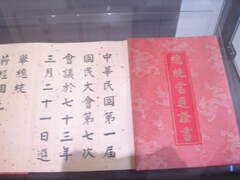 總統當選證書
中華民國第一屆
國民大會第七次
會議於七十三年
三月二十一日選
舉
總統
蔣經國